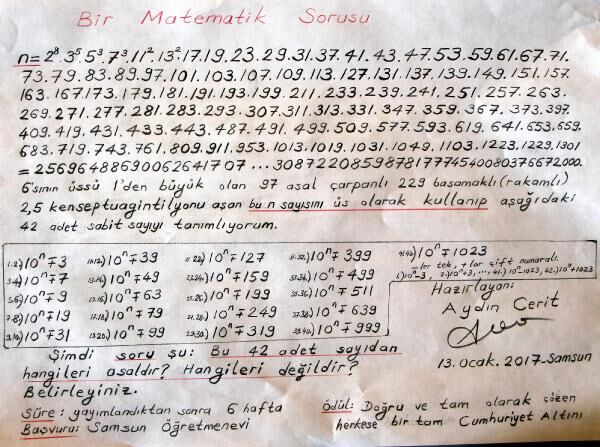 Bir Matematik Sorusu
n=2⁸.3⁵.5³.7³.11².13².17.19.23.29.31.37.41.43.47.53.59.61.67.71.
73.79.83.89.97.101.103.107.109.113.127.131.137.139.149.151.157.
163.167.173.179.181.191.193.199.211.233.239.241.251.257.263.
269.271.277.281.283.293.307.311.313.331.347.359.367.373.397.
409.419.431.433.443.487.491.499.509.577.593.619.641.653.659.
683.719.743.761.809.911.953.1013.1019.1031.1049.1103.1223.1229.1301
=25696488690062641707...308722085987817774540080376672000.
6'sının üssü 1'den büyük olan 97 asal çarpanlı 229 basamaklı (rakamlı)
2,5 kenseptuagintilyonu aşan bu n sayısını üs olarak kullanıp aşağıdaki
42 adet sabit sayıyı tanımlıyorum.
1.2) 10ⁿ∓3 11.12) 10ⁿ∓39 21.22) 10ⁿ∓127 31.32) 10ⁿ∓399 41.42) 10ⁿ∓1023
3.4) 10ⁿ∓7 13.14) 10ⁿ∓49 23.24) 10ⁿ∓159 33.34) 10ⁿ∓499 -ler tek, + lar çift numaralı.
5.6) 10ⁿ∓9 15.16) 10ⁿ∓63 25.26) 10ⁿ∓199 35.36) 10ⁿ∓511 1.) 10ⁿ-3, 2.) 10ⁿ+3, ..., 41.) 10ⁿ-1023, 42.) 10ⁿ+1023
7.8) 10ⁿ∓19 17.18) 10ⁿ∓79 27.28) 10ⁿ∓249 37.38) 10ⁿ∓639
9.10) 10ⁿ∓31 19.20) 10ⁿ∓99 29.30) 10ⁿ∓319 39.40) 10ⁿ∓999
Hazırlayan:
Aydın Cerit
13.Ocak.2017-Samsun
Şimdi soru şu: Bu 42 adet sayıdan
hangileri asaldır? Hangileri değildir?
Belirleyiniz.
Süre: yayımlandıktan sonra 6 hafta
Başvuru: Samsun Öğretmenevi
Ödül: Doğru ve tam olarak çözen
herkese bir tam Cumhuriyet Altını